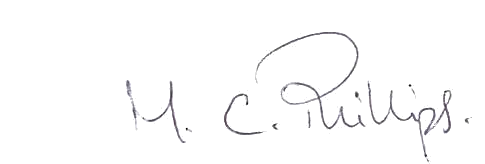 M. C. Phillips.